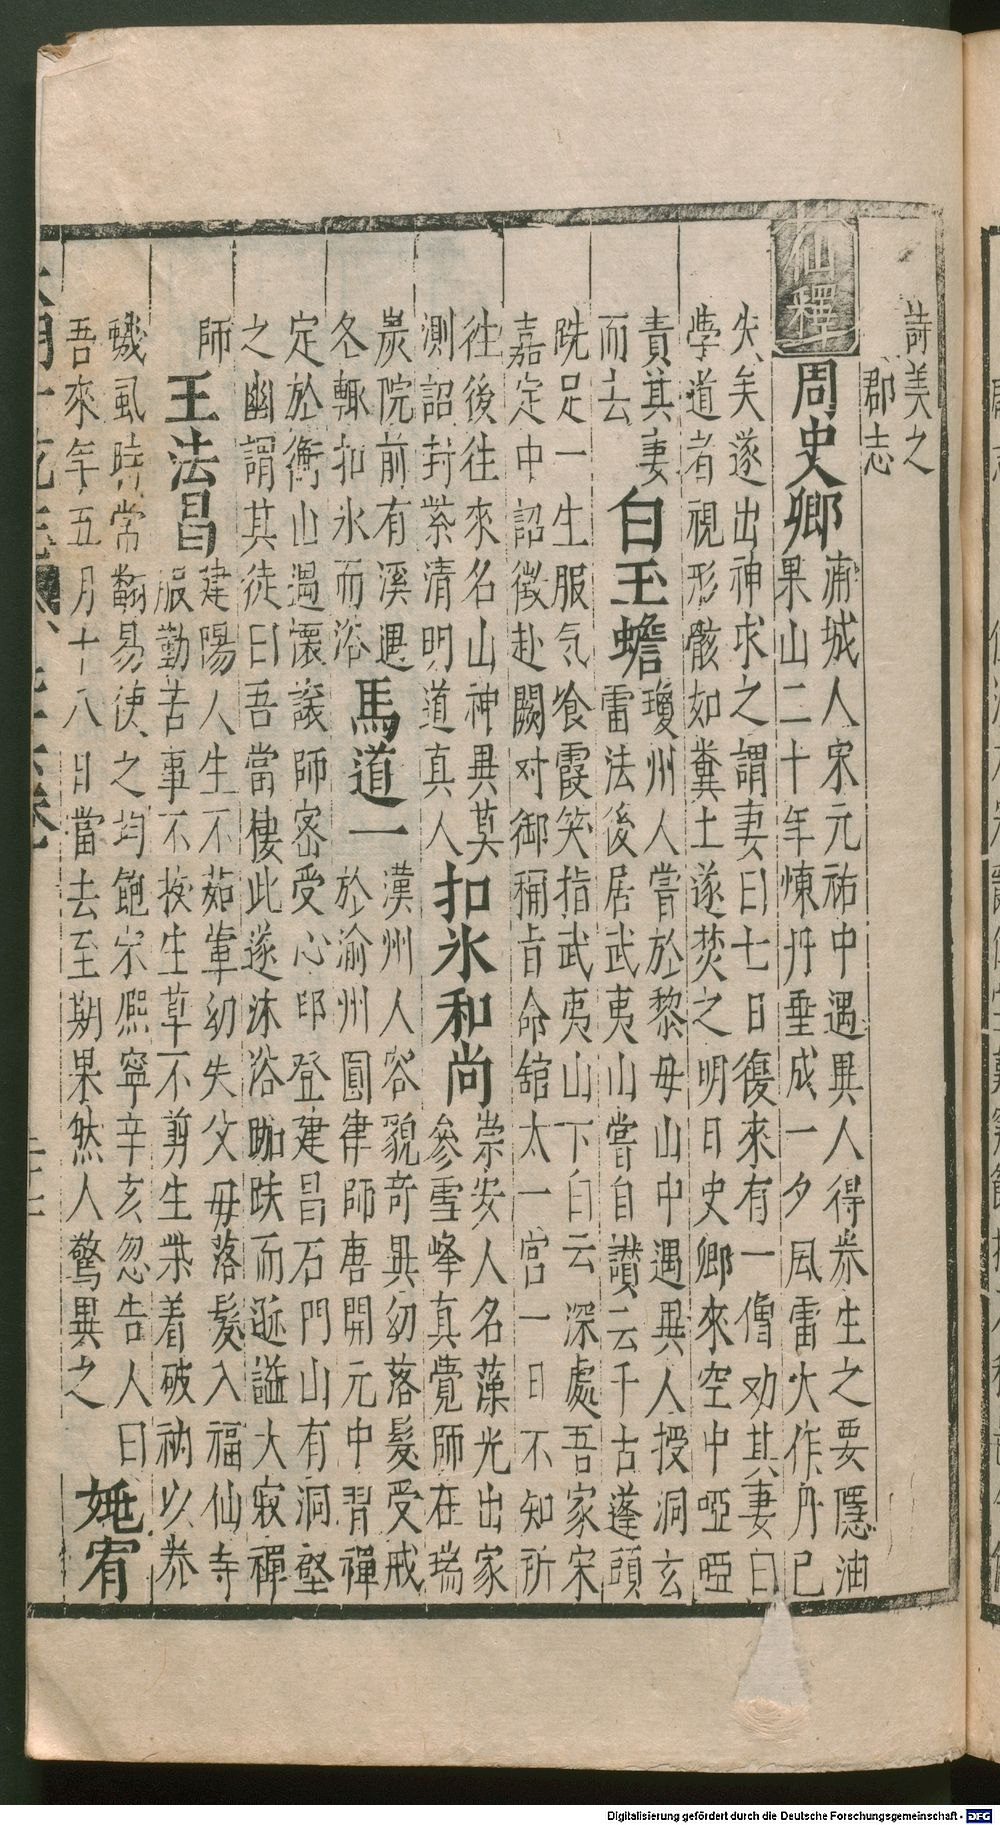 詩美之
郡志
仙釋
周史卿
浦城人宋元祐中遇異人得养生之要隱油
果山二十年煉丹垂成一夕風雷大作丹已
失矣遂出神求之謂妻曰七日復來有一僧劝其妻曰
學道者視形骸如糞土遂焚之明日史卿來空中啞啞
責其妻
而去
白玉蟾
瓊州人嘗於黎毋山中遇異人授洞玄
雷法後居武夷山嘗自讃云千古蓬頭
跣足一生服気飡霞笑指武夷山下白云深處吾家宋
嘉定中詔徵赴闕对御稱旨命舘太一宮一日不知所
往後往來名山神異莫
測詔封紫清明道真人
扣氷和尚
崇安人名藻光出家
參雪峰真覺師在瑞
炭院前有溪遇
冬輒扣氷而浴
馬道一
漢州人容貌奇異幼落髮受戒
於渝州圓律師唐開元中習禪
定於衡山遇懷讓師密受心印登建昌石門山有洞壑
之幽謂其徒曰吾當棲此遂沐浴跏趺而逝謚大寂禪
師
王法昌
建陽人生不茹葷幼失父毋落髮入福仙寺
服勤苦事不按生草不剪生柴着破衲以养
蟣虱時常翻易使之均飽宋熈寧辛亥忽告人曰
吾來年五月十八日當去至期果然人驚異之
姚宥
Digitalisierung gefördert durch die Deutsche Forschungsgemeinschaft - DFG